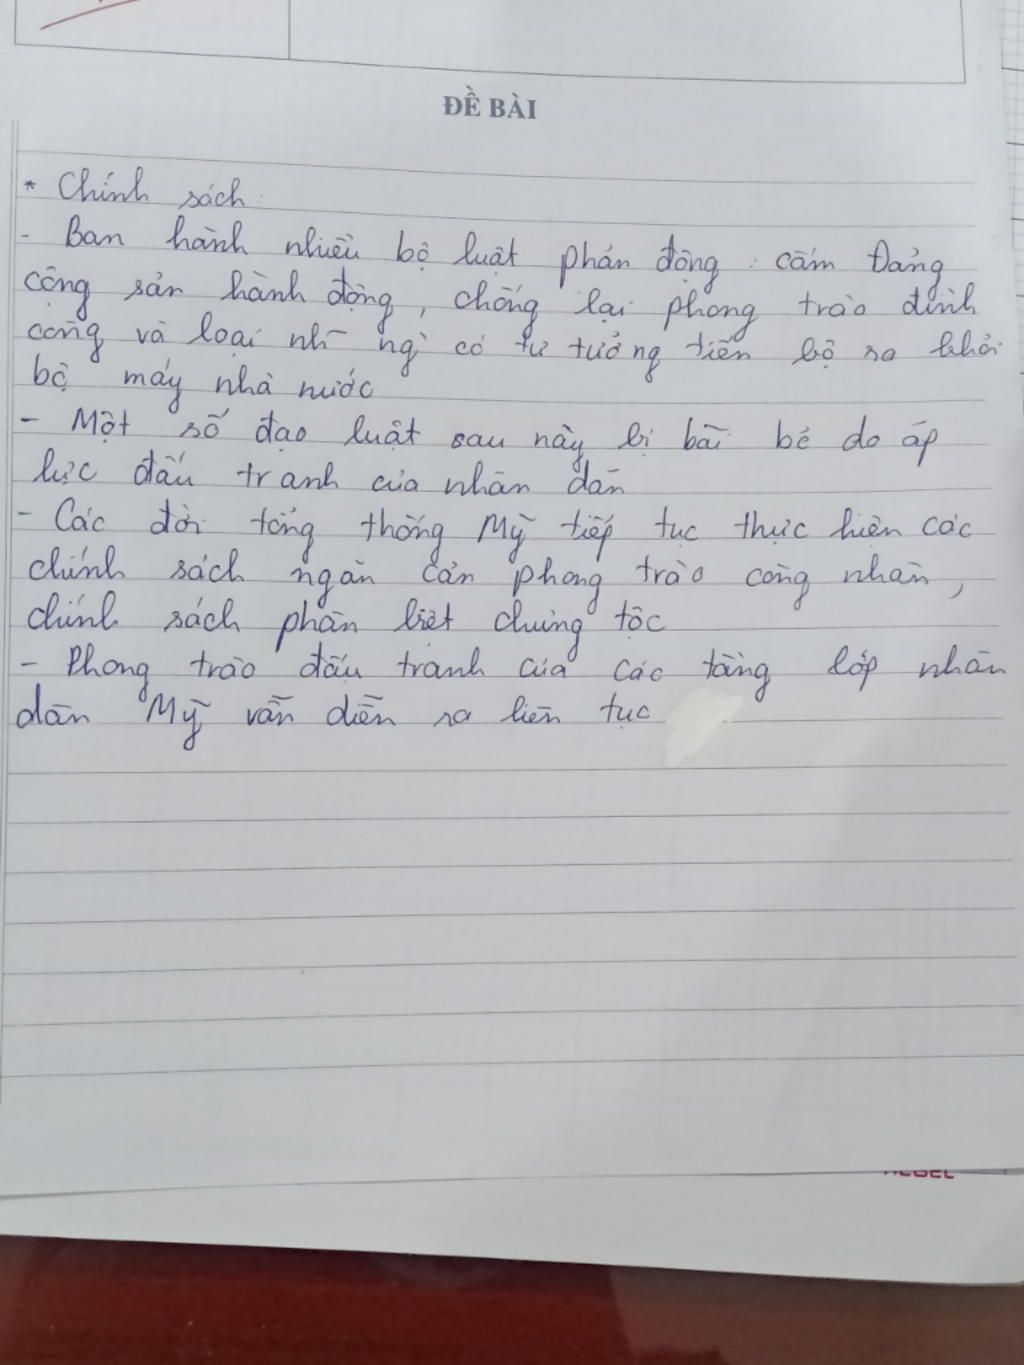 ĐỀ BÀI
* Chính sách:
- Ban hành nhiều bộ luật phản động: cấm Đảng
cộng sản hành động, chống lại phong trào đình
công và loại nh~ ng` có tư tưởng tiến bộ ra khỏi
bộ máy nhà nước
- Một số đạo luật sau này bị bãi bỏ do áp
lực đấu tranh của nhân dân
- Các đời tổng thống Mỹ tiếp tục thực hiện các
chính sách ngăn cản phong trào công nhân,
chính sách phân biệt chủng tộc
- Phong trào đấu tranh của các tầng lớp nhân
dân Mỹ vẫn diễn ra liên tục